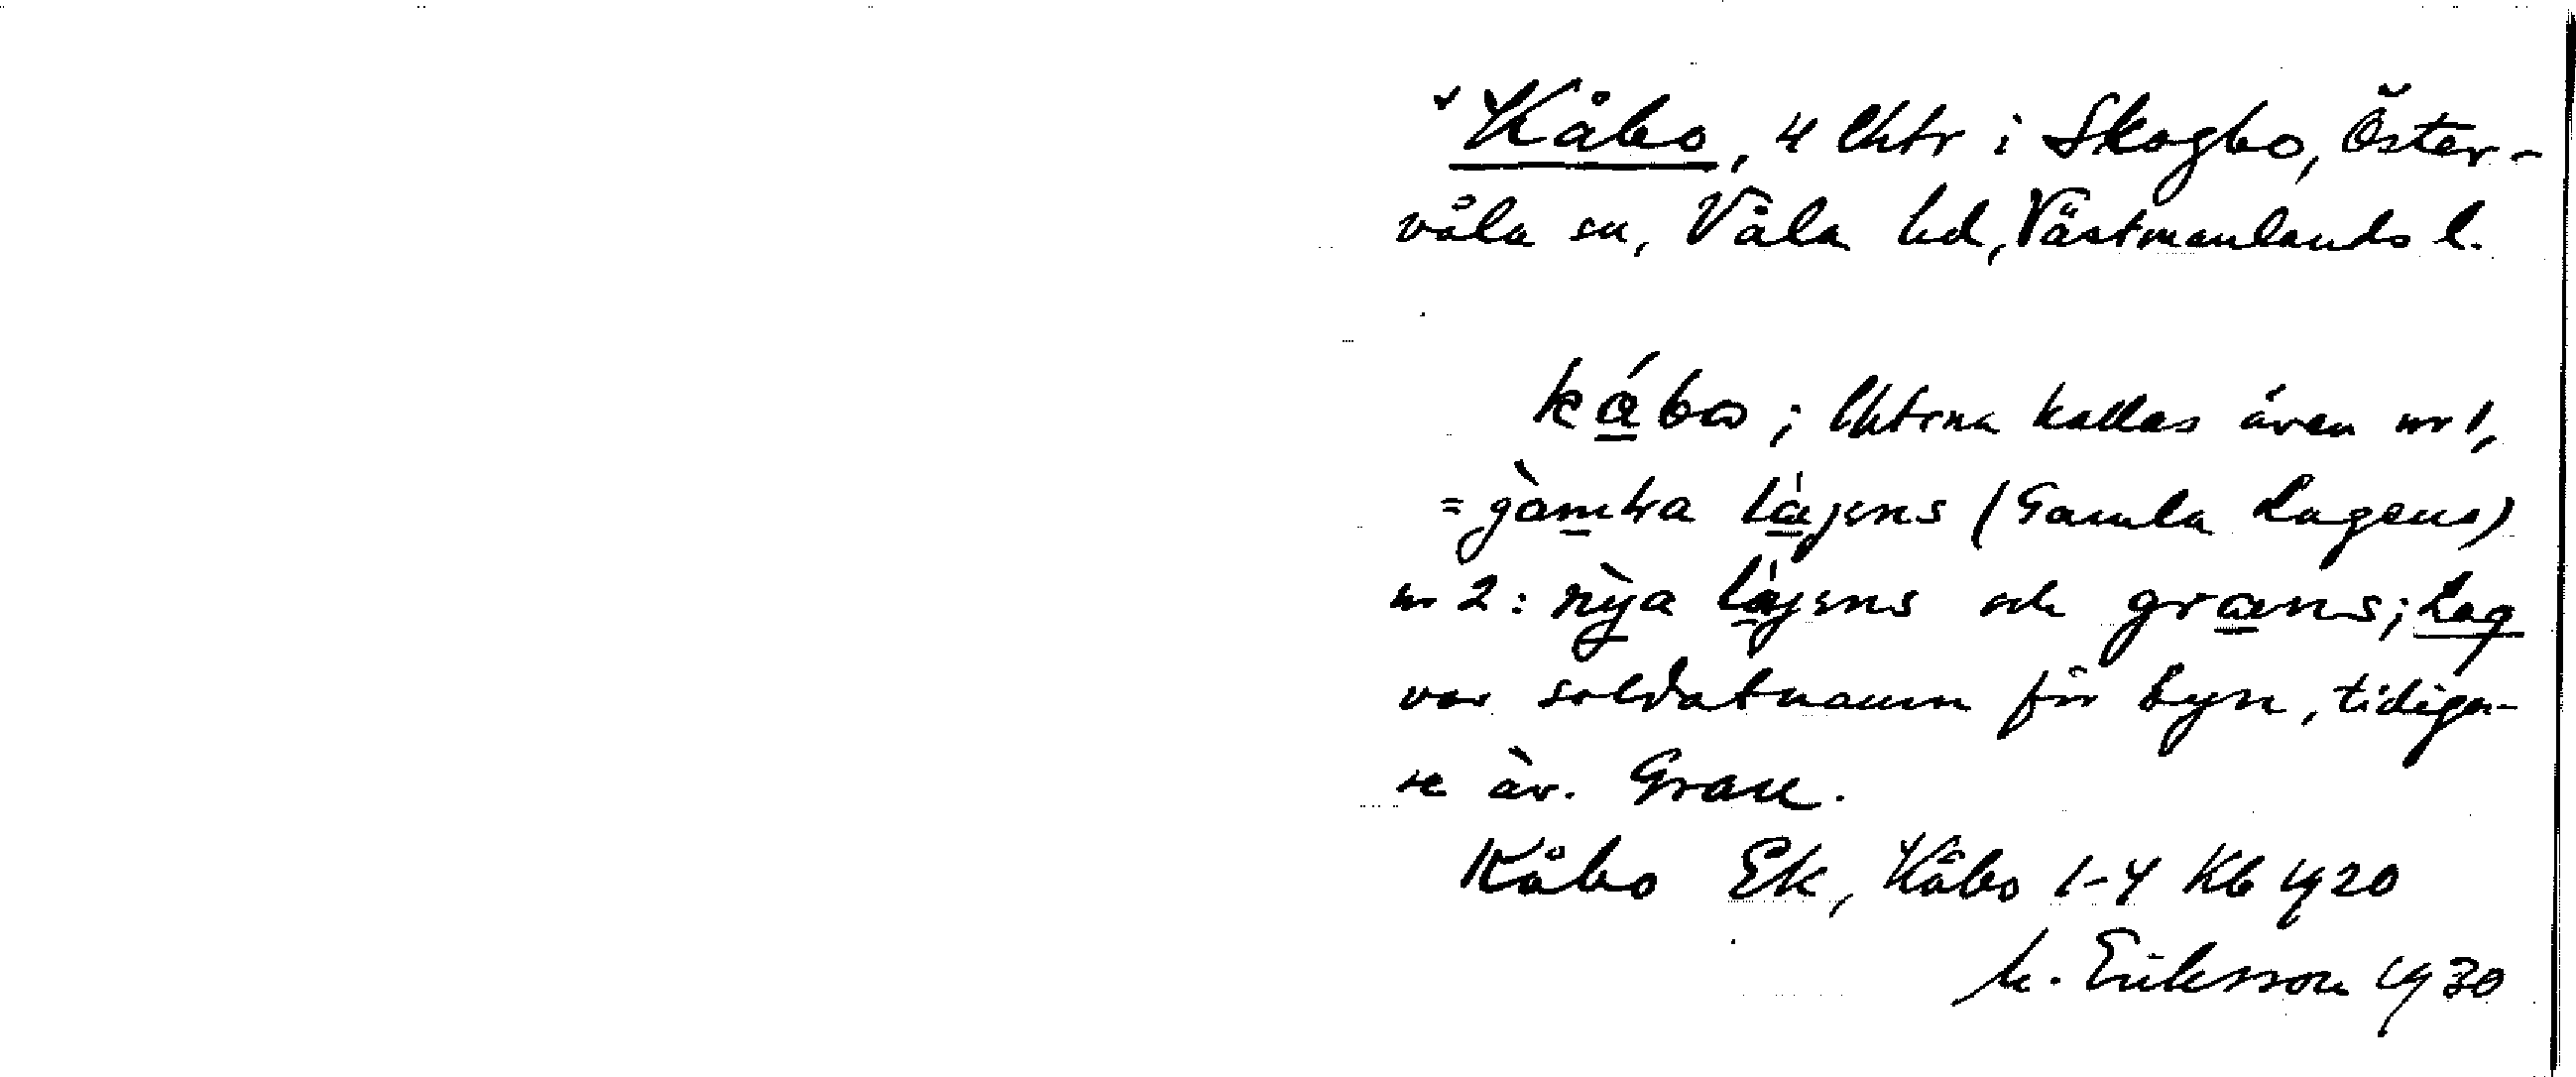 Kåbo, 4 lhtr i Skogbo, Öster-
våla sn, Våla hd, Västmanlands l.
kábo; lhtrna kallas även nr 1,
= gàmla làjens (Gamla Lagens)
nr 2: nỳa làjens och grans; Lag
var soldatnamn för byn, tidiga-
re äv. Gran.
Kåbo Ek, Kåbo 1-4 Kb 1920
M. Eriksson 1930